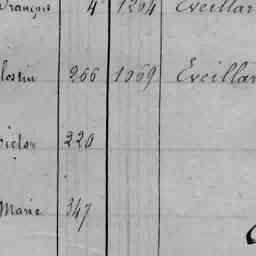 François 4 1264 Eveillar
lostin 266 1069 Eveillar
ictor 220
Marie 347